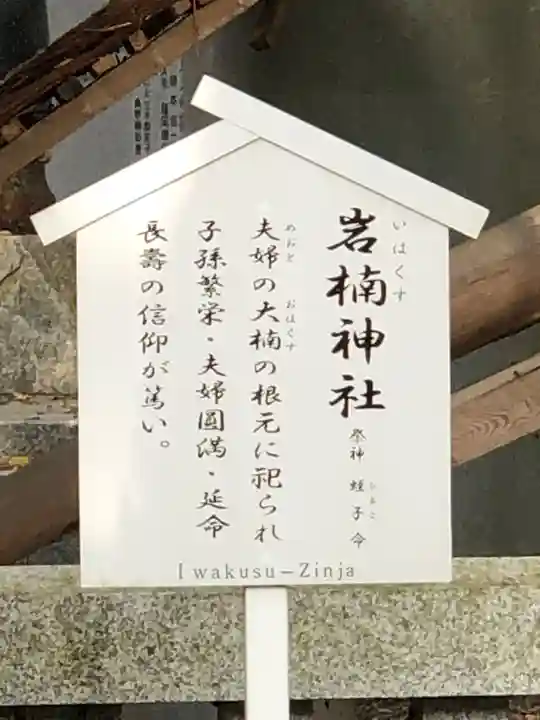 岩楠神社 祭神 蛭子命
いはくす
ひるこ
夫婦の大楠の根元に祀られ
めおと おほくす
子孫繁栄・夫婦圓満・延命
長壽の信仰が篤い。
Iwakusu－Zinja